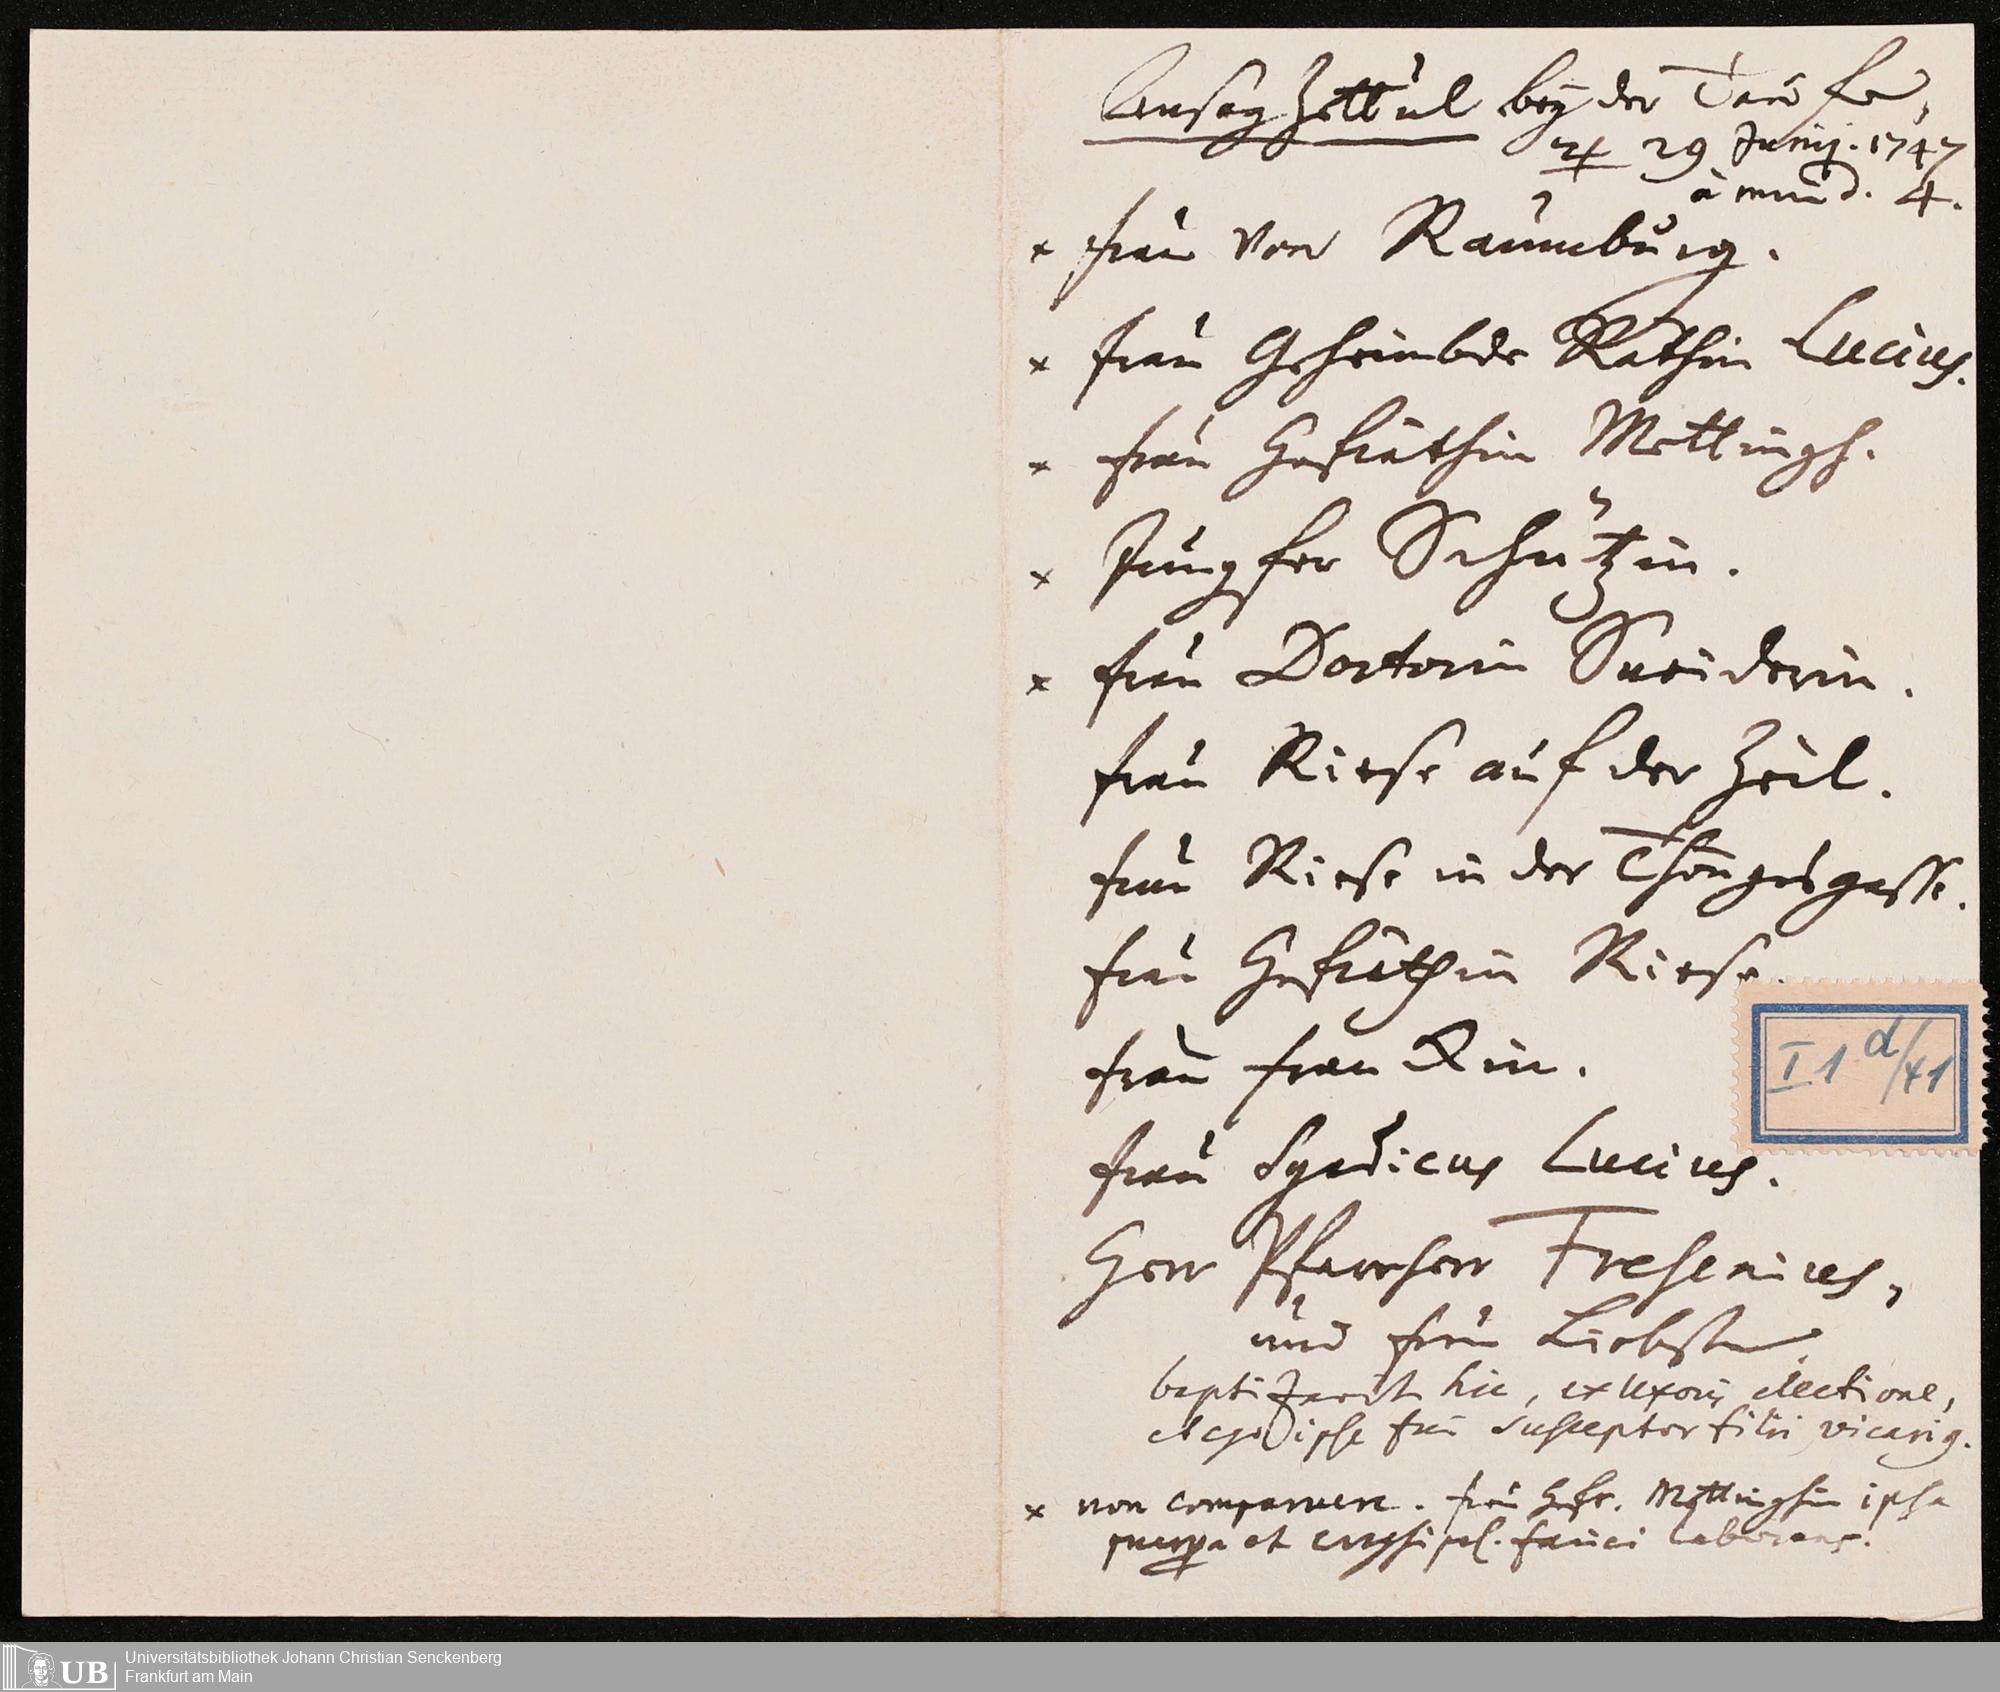 Ansag Zettul bey der Taufe,
♃ 29 Junij. 1747
a mund. 4.
x frau von Raumburg.
x frau Geheimbde Räthin Lucius.
x frau Hofräthin Mettingh.
x Jungfer Schützin.
x frau Doctorin Sneiderin.
frau Riese auf der Zeil.
frau Riese in der Thöngesgasse.
frau Hofräthin Riese.
frau
frau Syndicus Lucius.
Herr Pfarrherr Fresenius,
und frau Liebste,
baptizavit hic, ex uxoris electione,
et ego ipse fui susceptor filii vicarig.
x non comparuere. frau Hofr. Mettinghin ipsa
puerpera et fauci laborans.
I 1 d/41
Universitätsbibliothek Johann Christian Senckenberg
UB Frankfurt am Main